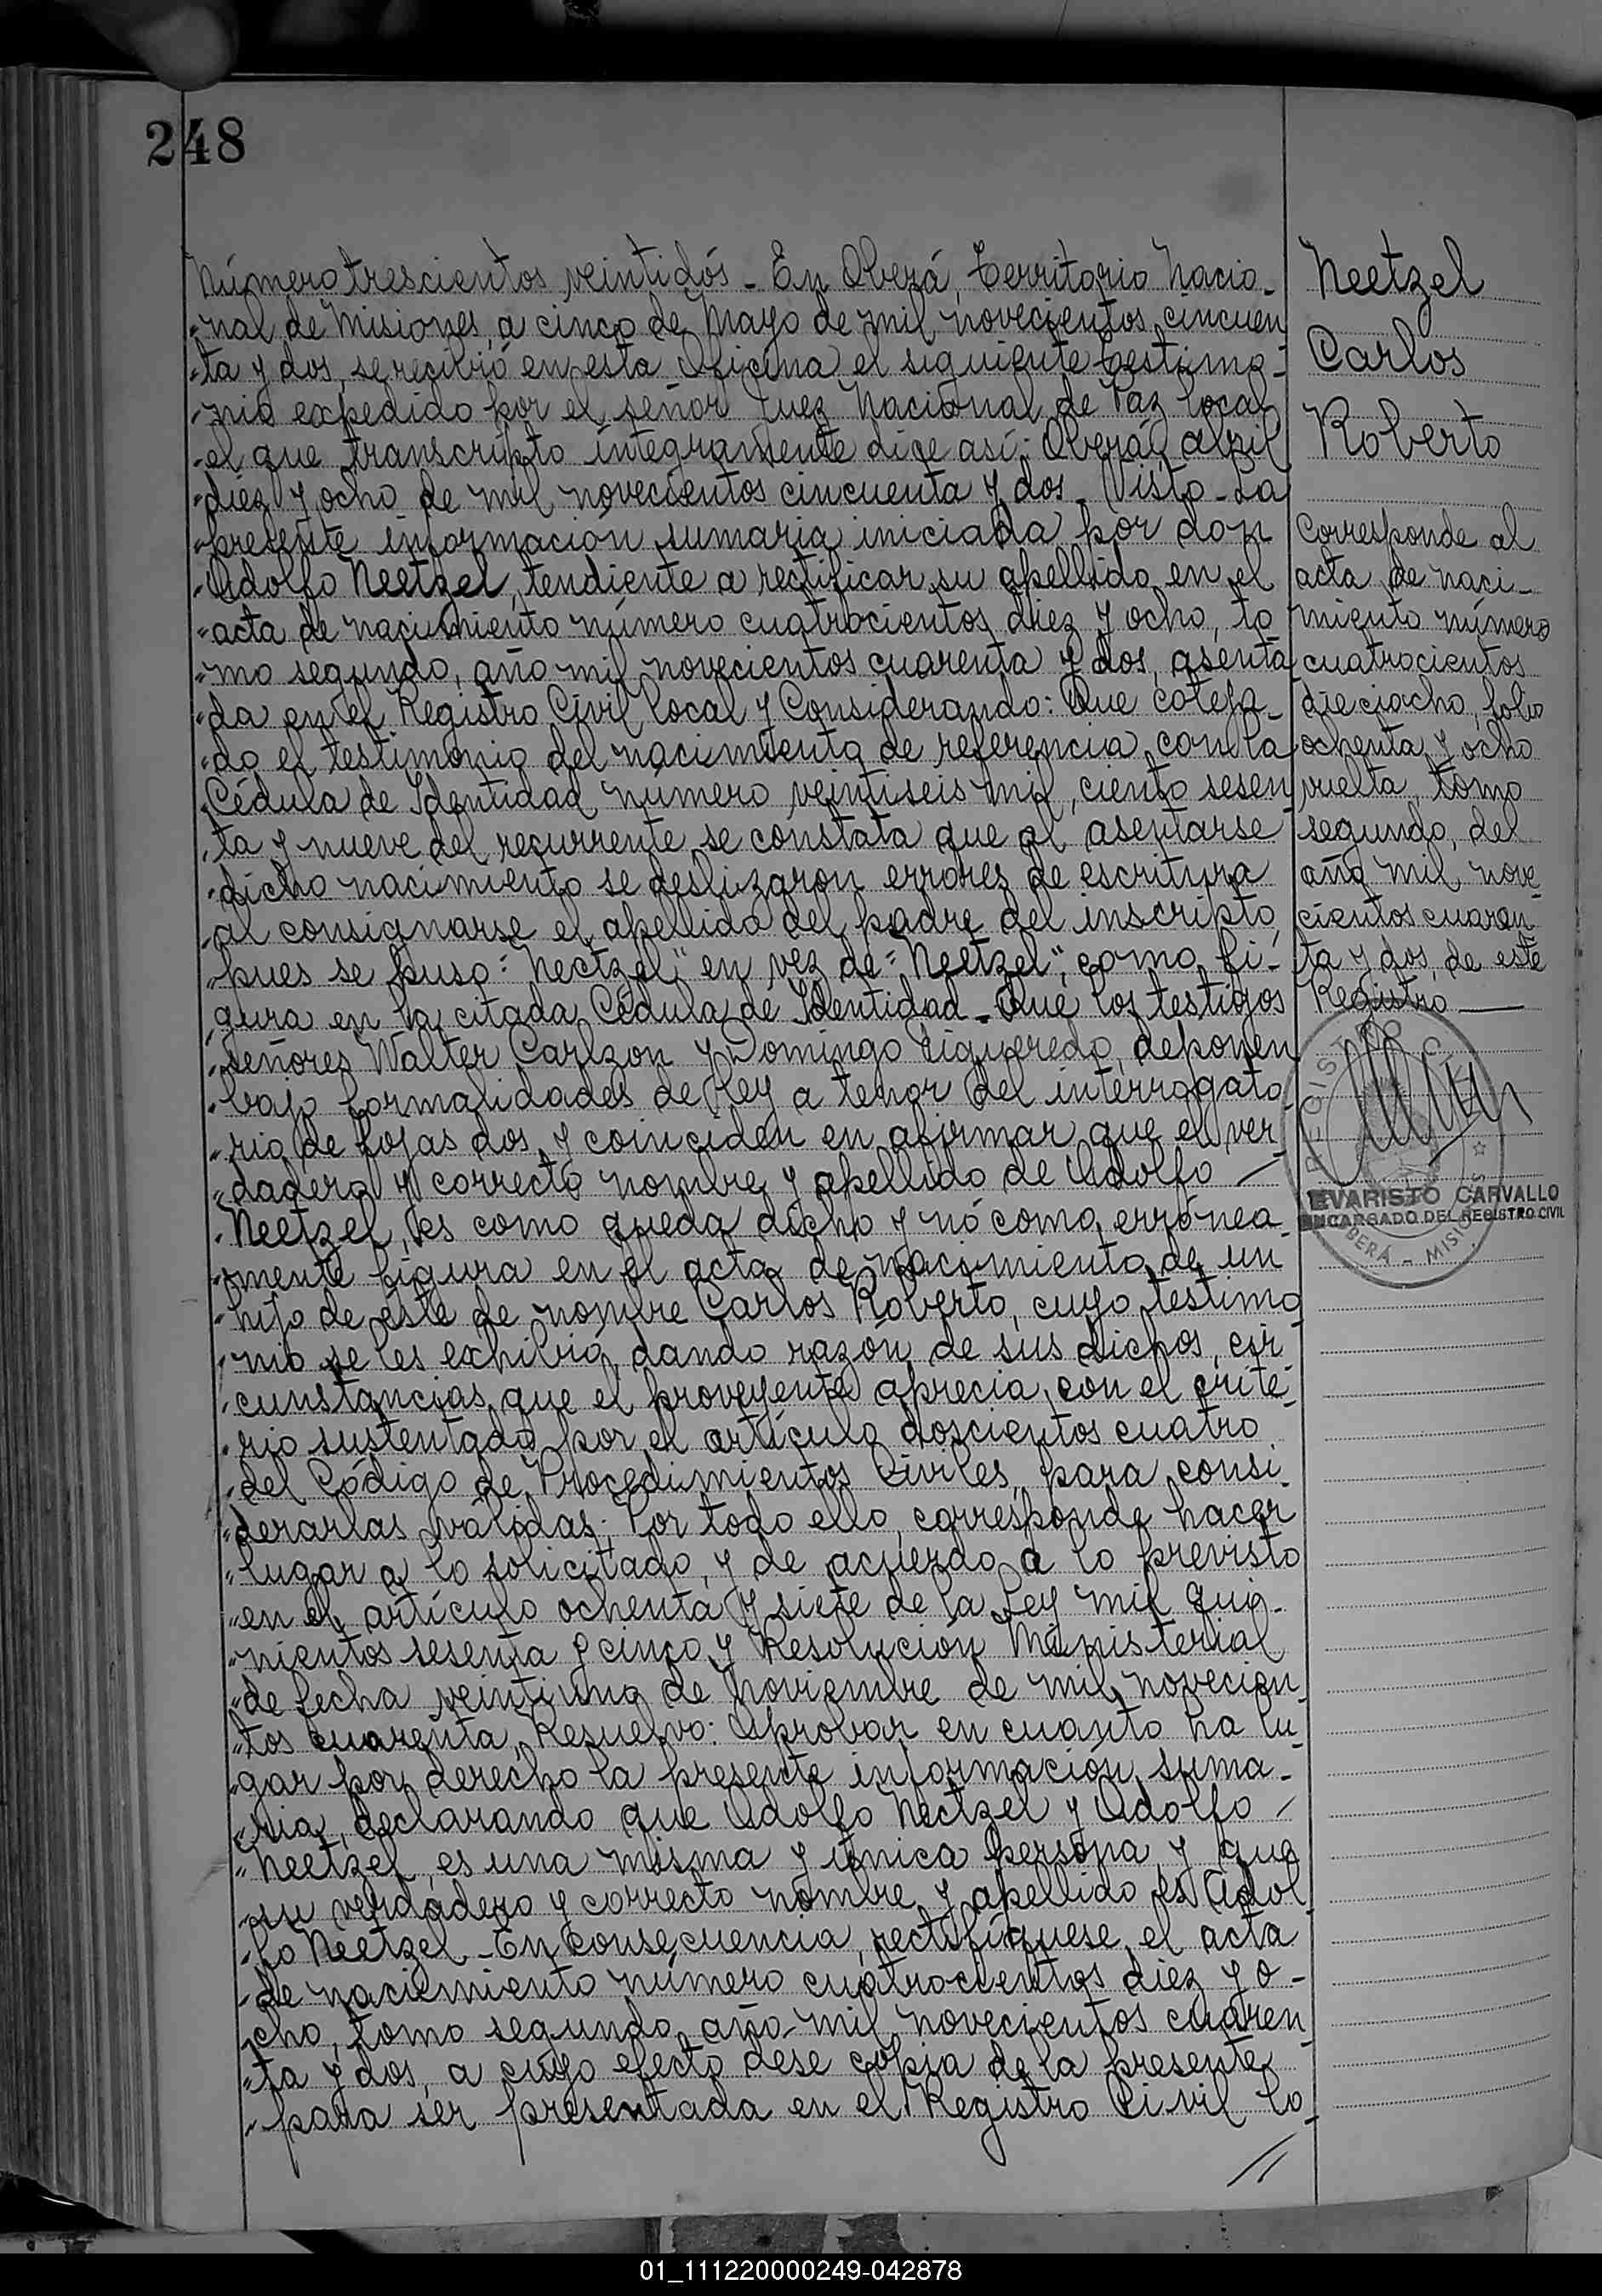 248
Número trescientos veintidós - En Oberá, Territorio Nacio-
"nal de Misiones, a cinco de Mayo de mil novecientos cincuen
"ta y dos, se recibió en esta Oficina el siguiente testimo-
"nio expedido por el señor Juez Nacional de Paz local
"el que transcripto íntegramente dice así: Oberá, abril
"diez y ocho de mil novecientos cincuenta y dos - Visto - La
"presente información sumaria iniciada por don
"Adolfo Neetzel, tendiente a rectificar su apellido en el
"acta de nacimiento número cuatrocientos diez y ocho, to
"mo segundo, año mil novecientos cuarenta y dos, asenta
"da en el Registro Civil local y Considerando: Que coteja-
"do el testimonio del nacimiento de referencia con la
"Cédula de Identidad número veintiseis mil, ciento sesen
"ta y nueve del recurrente se constata que al asentarse
"dicho nacimiento se deslizaron errores de escritura
"al consignarse el apellido del padre del inscripto,
"pues se puso: "Nectzel" en vez de "Neetzel", como fi-
"gura en la citada Cédula de Identidad - Que los testigos
"señores Walter Carlzon y Domingo Figueredo, deponen
"bajo formalidades de Ley a tenor del interrogato
"rio de fojas dos y coinciden en afirmar que el ver-
"dadero y correcto nombre y apellido de Adolfo —
"Neetzel, es como queda dicho y nó como errónea-
"mente figura en el acta de nacimiento de un
"hijo de éste de nombre Carlos Roberto, cuyo testimo
"nio se les exhibió, dando razón de sus dichos, cir-
"cunstancias que el proveyente aprecia con el crite-
"rio sustentado por el artículo doscientos cuatro
"del Código de Procedimientos Civiles, para consi-
"derarlas válidas; Por todo ello, corresponde hacer
"lugar a lo solicitado, y de acuerdo a lo previsto
"en el artículo ochenta y siete de la Ley mil qui-
"nientos sesenta y cinco y Resolución Ministerial
"de fecha veintiuno de Noviembre de mil novecien-
"tos cuarenta, Resuelvo: Aprobar en cuanto ha lu-
"gar por derecho la presente información suma-
"ria, declarando que Adolfo Nectzel y Adolfo —
"Neetzel, es una misma y única persona, y que
"su verdadero y correcto nombre y apellido es Adol
"fo Neetzel - En consecuencia, rectifíquese el acta
"de nacimiento número cuatrocientos diez y o-
"cho, tomo segundo, año mil novecientos cuaren
"ta y dos, a cuyo efecto dese copia de la presente
"para ser presentada en el Registro Civil lo-
//
Neetzel
Carlos
Roberto
Corresponde al
acta de naci-
miento número
cuatrocientos
dieciocho, folio
ochenta y ocho
vuelta, tomo
segundo, del
año mil nove-
cientos cuaren-
ta y dos, de este
Registro —
EVARISTO CARVALLO
ENCARGADO DEL REGISTRO CIVIL
OBERÁ - MISIONES
01_111220000249-042878